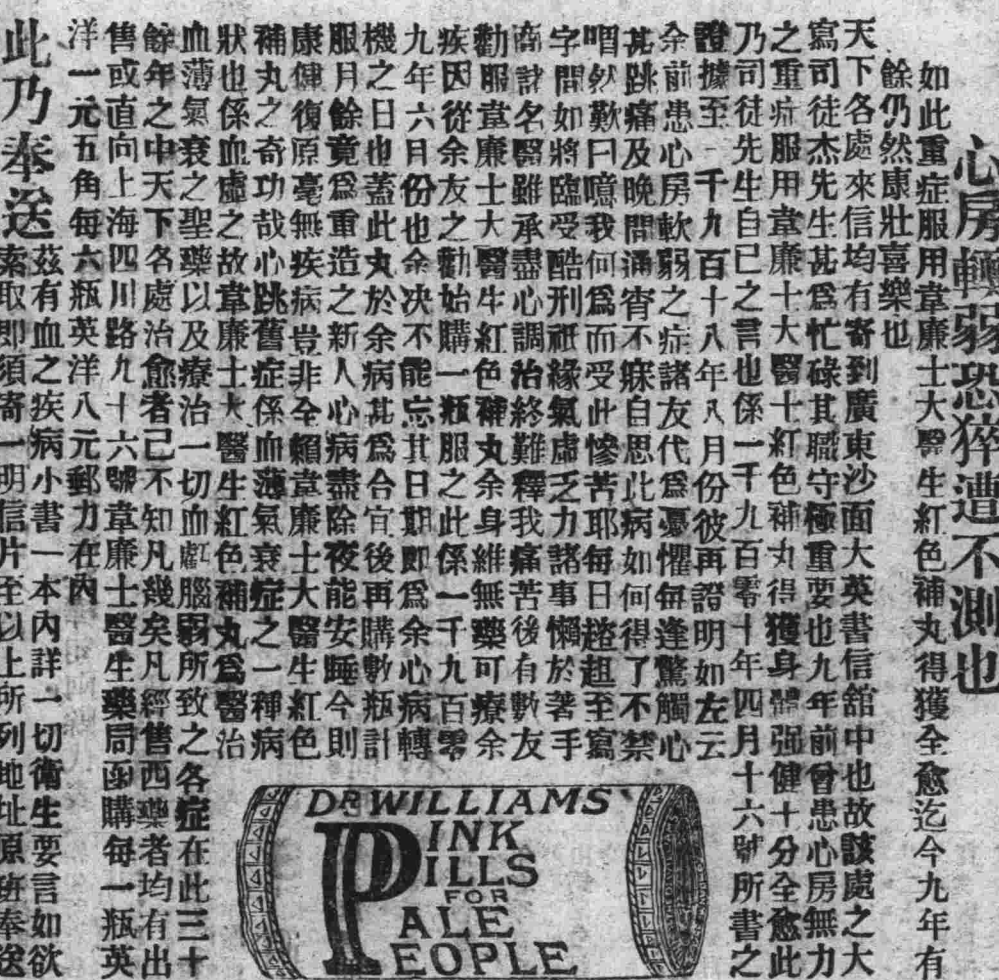 心房輭弱恐猝遭不測也
如此重症服用韋廉士大醫生紅色補丸得獲全愈迄今九年有
餘仍然康壯喜樂也
天下各處來信均有寄到廣東沙面大英書信舘中也故該處之大
寫司徒杰先生甚爲忙碌其職守極重要也九年前曾患心房無力
之重症服用韋廉士大醫士紅色補丸得獲身體强健十分全愈此
乃司徒先生自已之言也係一千九百零十年四月十六號所書之
證據至一千九百十八年八月份彼再證明如左云
余前患心房軟弱之症諸友代爲憂懼每逢驚觸心
甚跳痛及晚間通宵不寐自思此病如何得了不禁
喟然歎曰噫我何爲而受此慘苦耶每日趦趄至寫
字間如將臨受酷刑祇緣氣虛乏力諸事懶於著手
商諸名醫雖承盡心調治終難釋我痛苦後有數友
勸服韋廉士大醫生紅色補丸余身維無藥可療余
疾因從余友之勸始購一瓶服之此係一千九百零
九年六月份也余决不能忘其日期即爲余心病轉
機之日也蓋此丸於余病甚爲合宜後再購數瓶計
服月餘竟爲重造之新人心病盡除夜能安睡今則
康健復原毫無疾病豈非全賴韋廉士大醫生紅色
補丸之奇功哉心跳舊症係血薄氣衰症之一種病
狀也係血虛之故韋廉士大醫生紅色補丸爲醫治
血薄氣衰之聖藥以及療治一切血虧腦弱所致之各症在此三十
餘年之中天下各處治愈者已不知凡幾矣凡經售西藥者均有出
售或直向上海四川路九十六號韋廉士醫生藥局函購每一瓶英
洋一元五角每六瓶英洋八元郵力在內
此乃奉送
茲有血之疾病小書一本內詳一切衛生要言如欲
索取即須寄一明信片至以上所列地址原班奉送
DR WILLIAMS'
PINK
PILLS
FOR
PALE
PEOPLE